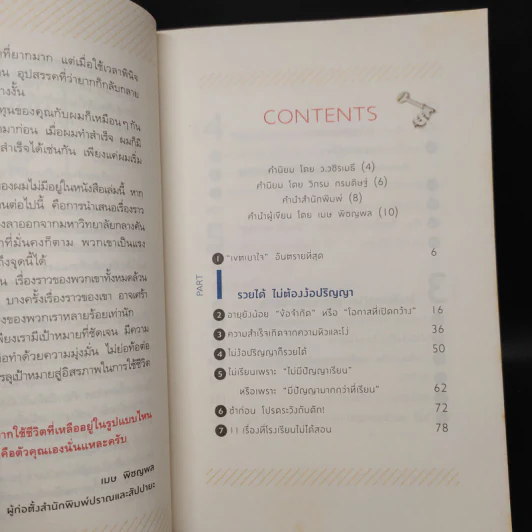 ที่ยากมาก แต่เมื่อใช้เวลาพินิจ
อุปสรรคที่ว่ายากก็กลับกลาย
างั้น
ทุนของคุณกับผมก็เหมือนๆกัน
มาก่อน เมื่อผมทำสำเร็จ ผมก็มี
สำเร็จได้เช่นกัน เพียงแค่ผมเริ่ม
องผมไม่มีอยู่ในหนังสือเล่มนี้ หาก
นต่อไปนี้ คือการนำเสนอเรื่องราว
งลาออกจากมหาวิทยาลัยกลางคัน
ที่มั่นคงก็ตาม พวกเขาเป็นแรง
ถึงจุดนี้ได้
น เรื่องราวของพวกเขาทั้งหมดล้วน
บางครั้งเรื่องราวของเขา อาจเศร้า
งของพวกเราหลายร้อยเท่านัก
พียงเรามีเป้าหมายที่ชัดเจน มีความ
อทำด้วยความมุ่งมั่น ไม่ย่อท้อต่อ
รลุเป้าหมายสู่อิสรภาพในการใช้ชีวิต
ากใช้ชีวิตที่เหลืออยู่ในรูปแบบไหน
คือตัวคุณเองนั่นแหละครับ
เมษ พิชญพล
ผู้ก่อตั้งสำนักพิมพ์ปราณและสัปปายะ
CONTENTS
คำนิยม โดย ว.วชิรเมธี (4)
คำนิยม โดย วิกรม กรมดิษฐ์ (6)
คำนำสำนักพิมพ์ (8)
คำนำผู้เขียน โดย เมษ พิชญพล (10)
1 "เขตเบาใจ" อันตรายที่สุด 6
PART I รวยได้ ไม่ต้องง้อปริญญา
2 อายุยังน้อย "ข้อจำกัด" หรือ "โอกาสที่เปิดกว้าง" 16
3 ความสำเร็จเกิดจากความหิวและโง่ 36
4 ไม่ง้อปริญญาก็รวยได้ 50
5 ไม่เรียนเพราะ "ไม่มีปัญญาเรียน"
หรือเพราะ "มีปัญญามากกว่าที่เรียน" 62
6 ช้าก่อน โปรดระวังกับดัก! 72
7 11 เรื่องที่โรงเรียนไม่ได้สอน 78